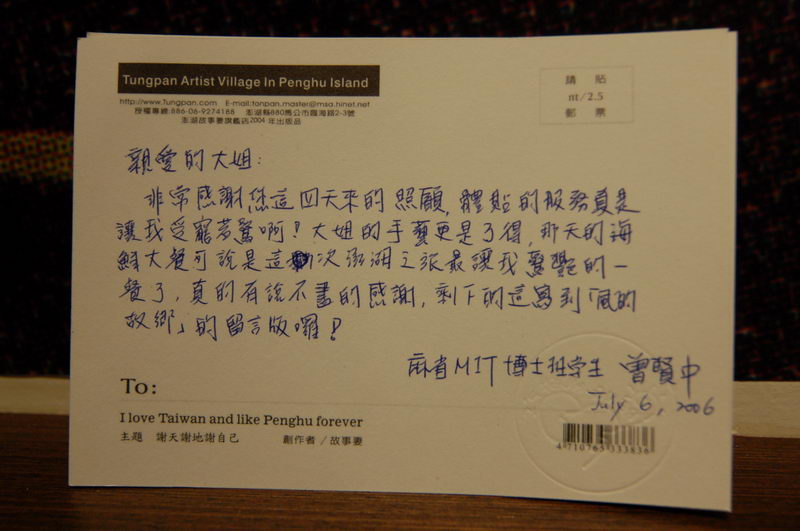 Tungpan Artist Village In Penghu Island
http://www.Tungpan.com E-mail:tonpan.master@msa.hinet.net
授權專線:886-06-9274188 澎湖縣880馬公市臨海路2-3號
澎湖故事妻旗艦店2004 年出版品
請 貼
nt/2.5
郵 票
親愛的大姐:
非常感謝您這四天來的照顧,體貼的服務真是
讓我受寵若驚啊!大姐的手藝更是了得,那天的海
鮮大餐可說是這次澎湖之旅最讓我驚豔的一
餐了,真的有說不盡的感謝,剩下的這寫到「風的
故鄉」的留言版囉!
麻省MIT博士班學生 曾賢中
July 6, 2006
To:
I love Taiwan and like Penghu forever
主題 謝天謝地謝自己 創作者 / 故事妻
4 710765 333836